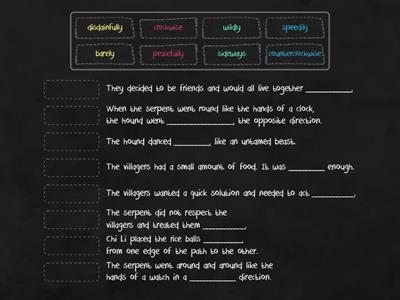 disdainfully clockwise wildly speedily
barely peacefully sideways counterclockwise
They decided to be friends and would all live together ____________.
When the serpent went round like the hands of a clock,
the hound went _________________, the opposite direction.
The hound danced _________, like an untamed beast.
The villagers had a small amount of food. It was _________ enough.
The villagers wanted a quick solution and needed to act ___________.
The serpent did not respect the
villagers and treated them ___________.
Chi Li placed the rice balls __________,
from one edge of the path to the other.
The serpent went around and around like the
hands of a watch in a ____________ direction.